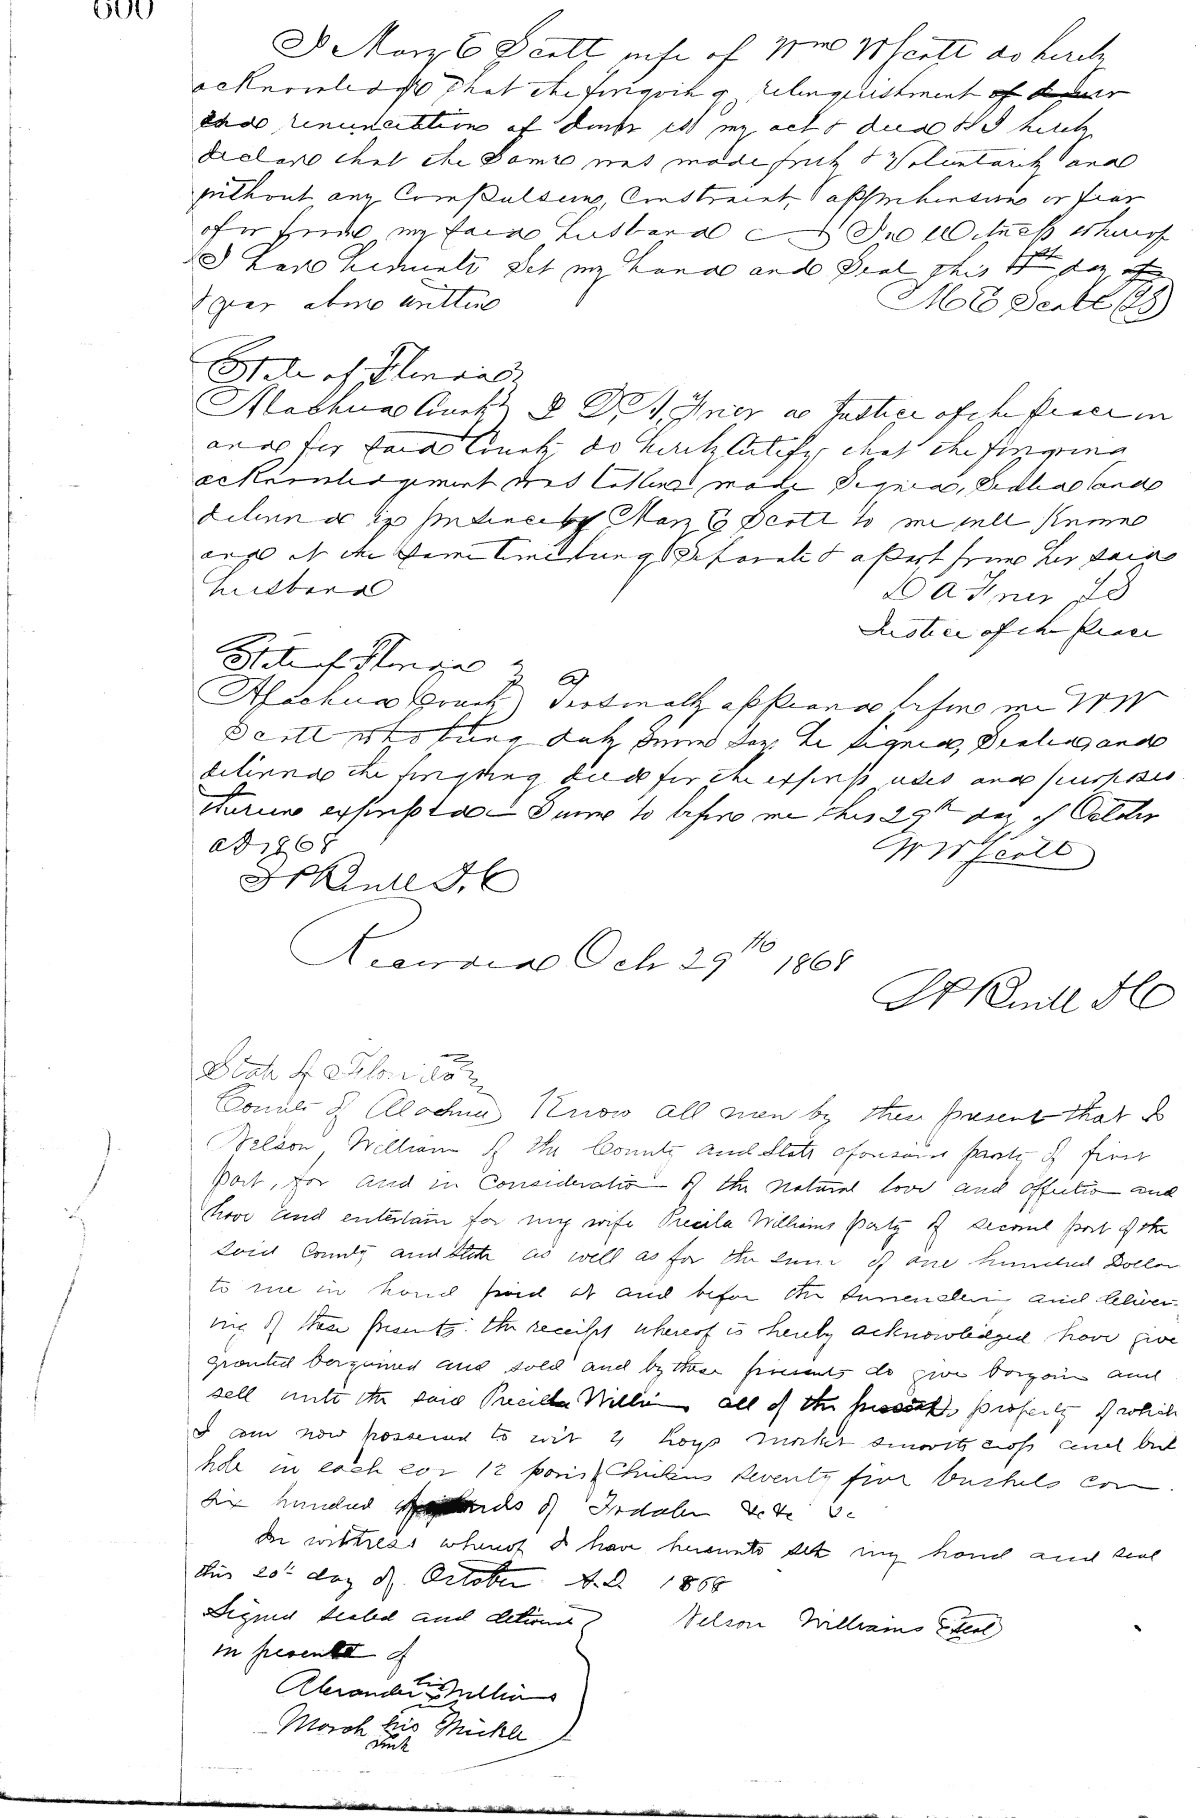 600
I Mary E Scott wife of Wm W Scott do hereby
acknowledge that the foregoing relinquishment of dower
and renunciation of dower is my act & deed & I hereby
declare that the Same was made freely & Voluntarily and
without any Compulsion, Constraint, apprehension or fear
of or from my said husband In Witness whereof
I have hereunto Set my hand and Seal this day of
& year above written M E Scott (LS)
State of Florida
Alachua County I D. A. Frier a Justice of the Peace in
and for said County do hereby Certify that the foregoing
acknowledgement was taken made Signed, Sealed and
delivered in presence by Mary E Scott to me well Known
and at the same time being Seperate & apart from her said
husband D A Frier LS
Justice of the Peace
State of Florida
Alachua County Personally appeared before me W W
Scott who being duly Sworn Says he Signed, Sealed and
delivered the foregoing deed for the express uses and purposes
therein expressed Sworn to before me this 29th day of October
AD 1868 W W Scott
Recorded Oct 29th 1868
State of Florida
County of Alachua Know all men by these present that I
Nelson William of the County and State aforesaid party of first
part, for and in Consideration of the natural love and affection and
have and entertain for my wife Precila Williams party of second part of the
said County and State as well as for the sum of one hundred Dollar
to me in hand paid at and before the and deliver-
ing of these presents the receipt whereof is hereby acknowledged have give
granted bargained and sold and by these presents do give bargain and
sell unto the said Precilla William all of the property of which
I am now possessed to wit hogs market smooth crop and but
hole in each ear 12 pair Chickens seventy five bushels corn
six hundred of Fodder &c &c &c
In wittness whereof I have hereunto set my hand and seal
this 20th day of October A.D. 1868
Signed sealed and delivered Nelson Williams Seal
in presents of
Alexander his x Williams
March his Mickle
mark